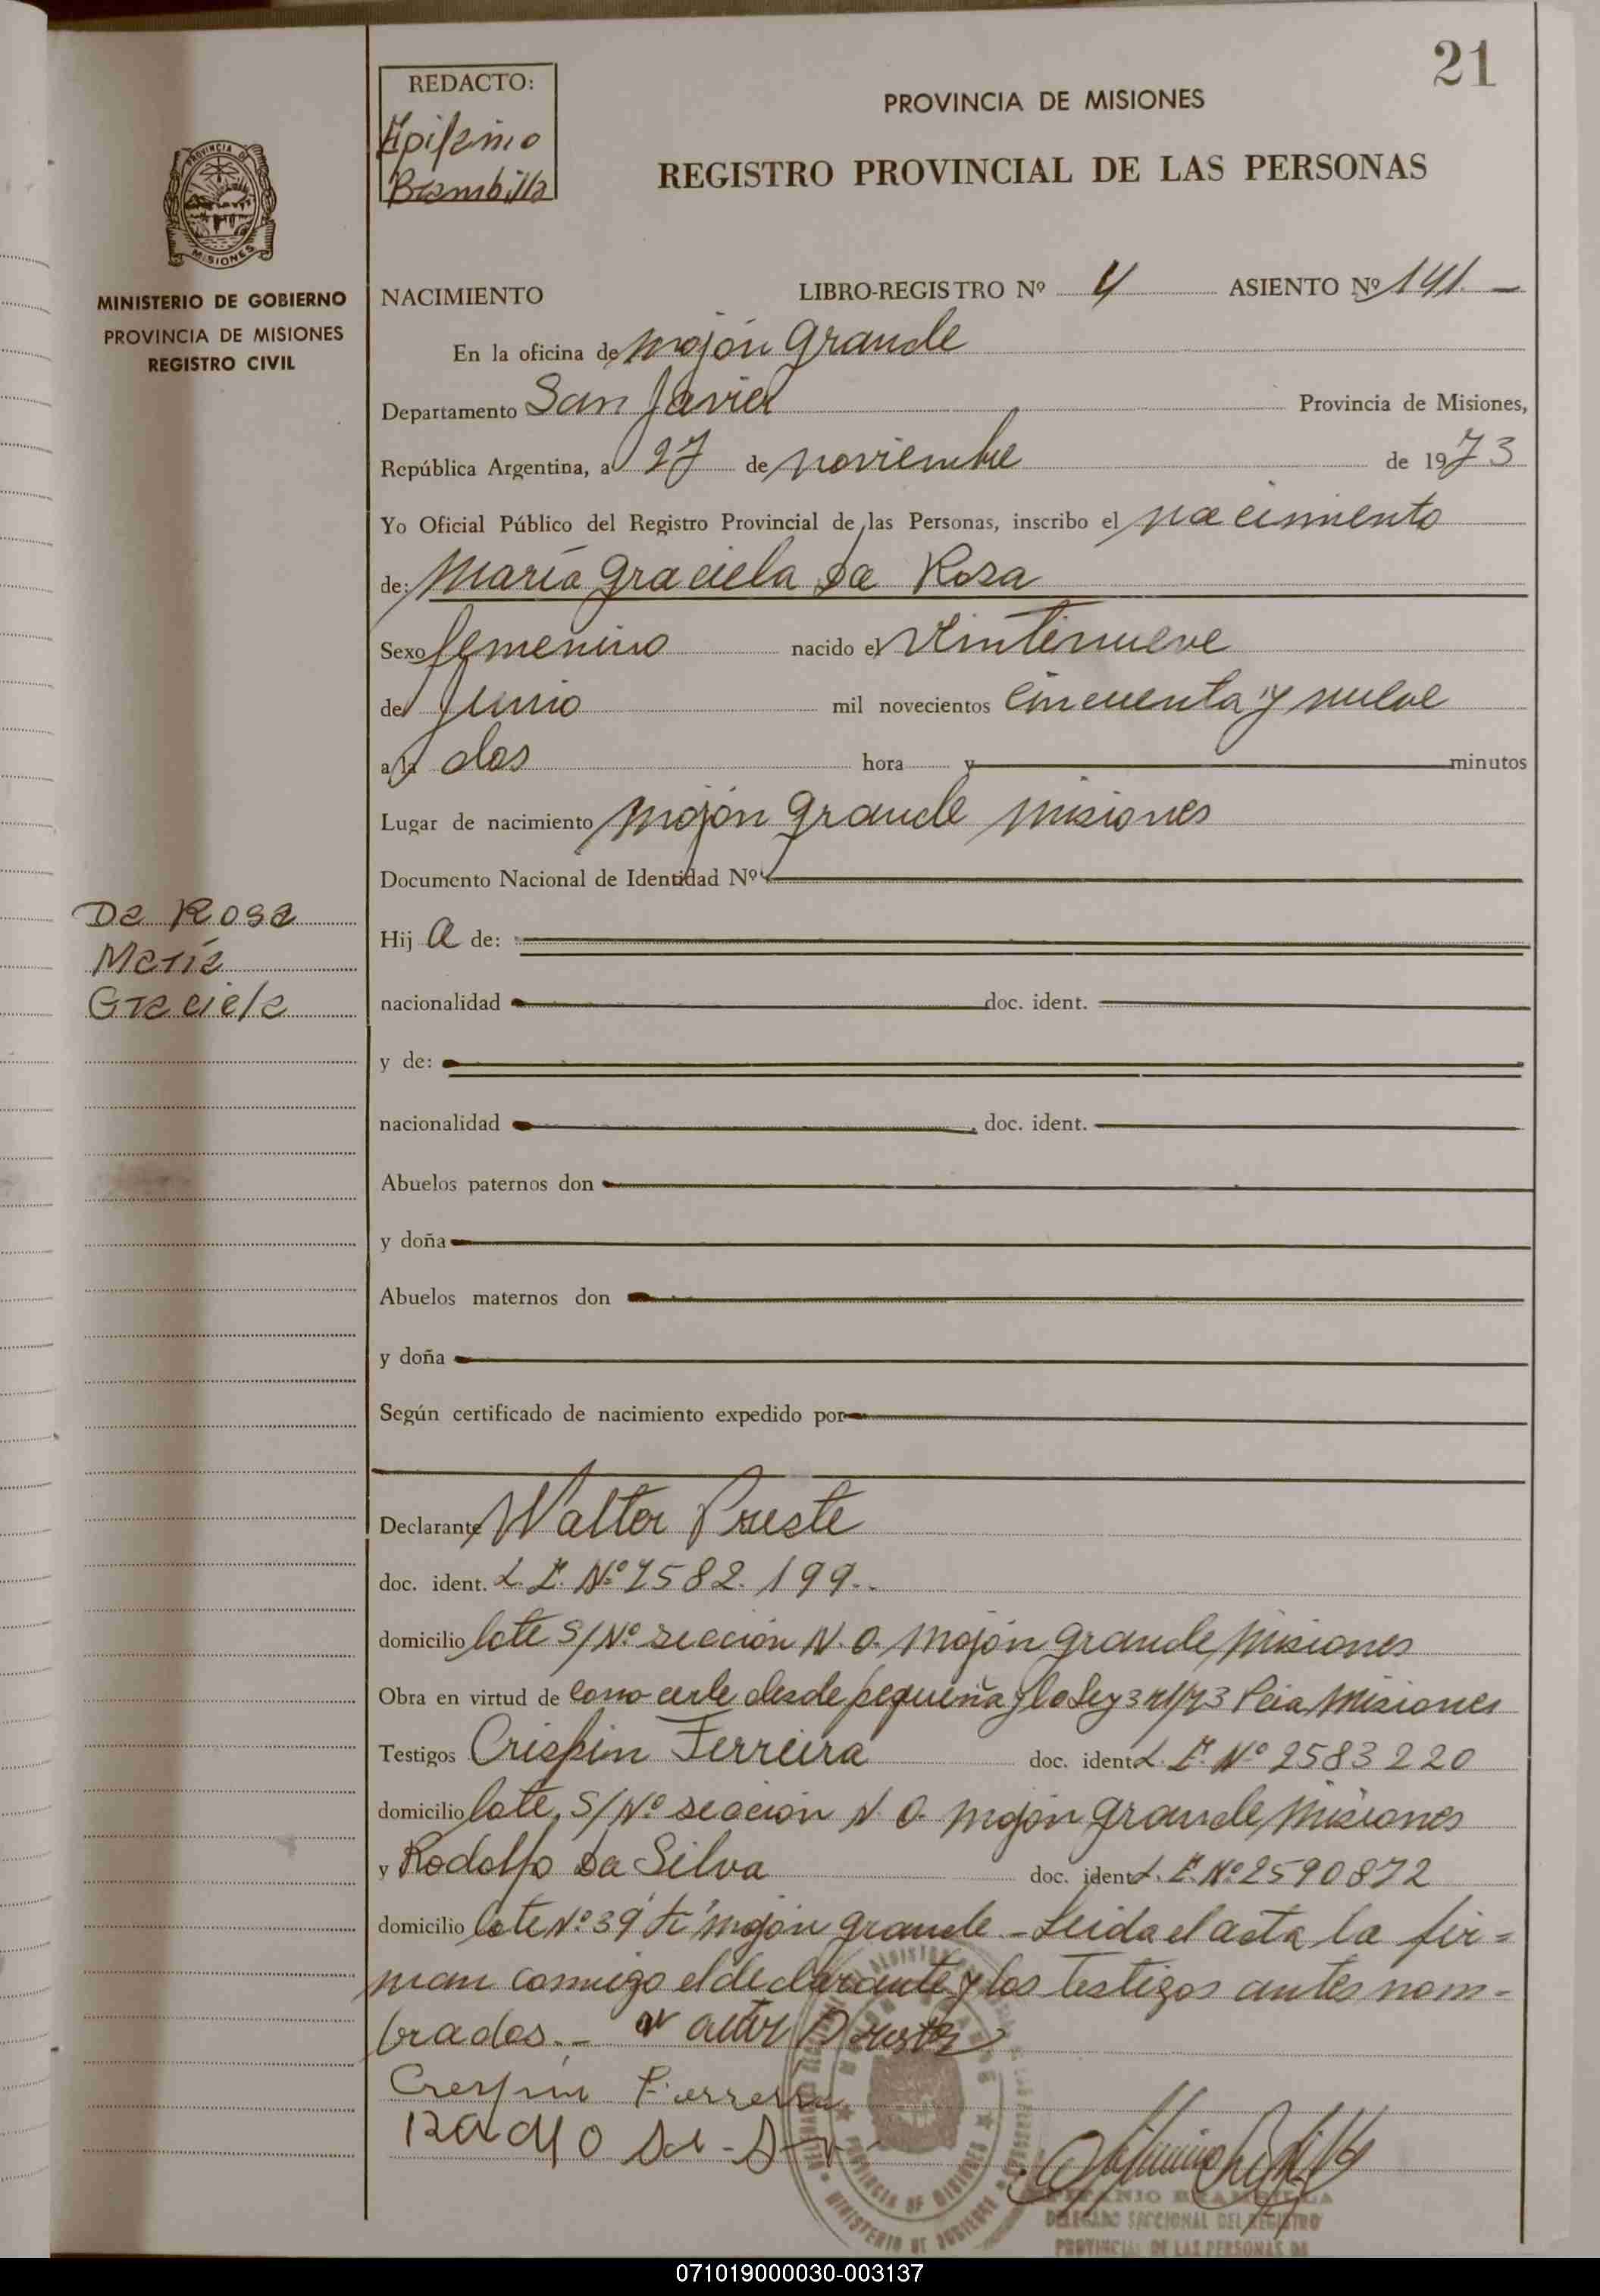 21
REDACTO:
Epifanio
Brambilla
PROVINCIA DE MISIONES
REGISTRO PROVINCIAL DE LAS PERSONAS
PROVINCIA DE
MISIONES
MINISTERIO DE GOBIERNO
PROVINCIA DE MISIONES
REGISTRO CIVIL
NACIMIENTO LIBRO-REGISTRO Nº 4 ASIENTO Nº 141.-
En la oficina de Mojón Grande
Departamento San Javier Provincia de Misiones,
República Argentina, a 27 de noviembre de 1973
Yo Oficial Público del Registro Provincial de las Personas, inscribo el nacimiento
de: María Graciela Da Rosa
Sexo femenino nacido el veintinueve
de junio mil novecientos cincuenta y nueve
a la dos hora y minutos
Lugar de nacimiento Mojón Grande Misiones
Documento Nacional de Identidad Nº
Da Rosa
María
Graciela
Hij a de:
nacionalidad doc. ident.
y de:
nacionalidad doc. ident.
Abuelos paternos don
y doña
Abuelos maternos don
y doña
Según certificado de nacimiento expedido por
Declarante Walter Preste
doc. ident. L. E. Nº 7582.199..
domicilio lote S/Nº sección N. O. Mojón Grande Misiones
Obra en virtud de conocerle desde pequeña y la Ley Pcia Misiones
Testigos Crispin Ferreira doc. ident. L. E. Nº 2583220
domicilio lote S/Nº sección N. O. Mojón Grande Misiones
y Rodolfo Da Silva doc. ident. L. E. Nº 2590872
domicilio lote Nº 39 Mojón Grande - Leida el acta la fir=
man conmigo el declarante y los testigos antes nom-
brados.-
EPIFANIO BRAMBILLA
DELEGADO SECCIONAL DEL REGISTRO
PROVINCIAL DE LAS PERSONAS DE
PROVINCIA DE MISIONES
MINISTERIO DE GOBIERNO
071019000030-003137